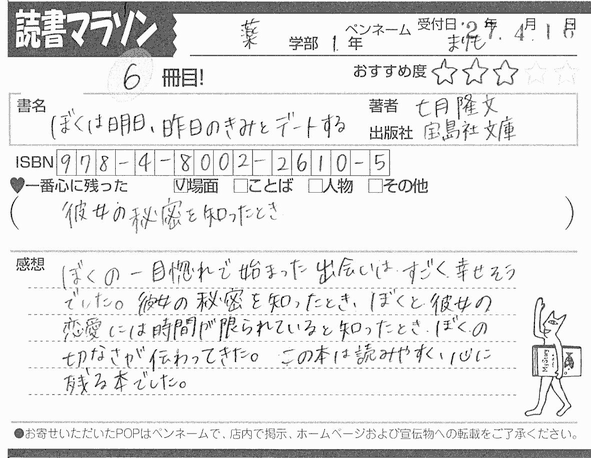 読書マラソン
薬 学部 1年 ペンネーム まりも 受付日 '27年4月18日
6 冊目! おすすめ度 ☆☆☆☆☆
書名 ぼくは明日、昨日のきみとデートする
著者 七月隆文
出版社 宝島社文庫
ISBN 978-4-8002-2610-5
♥一番心に残った ☑場面 □ことば □人物 □その他
( 彼女の秘密を知ったとき )
感想 ぼくの一目惚れで始まった出会いは、すごく幸せそう
でした。彼女の秘密を知ったとき、ぼくと彼女の
恋愛には時間が限られていると知ったとき、ぼくの
切なさが伝わってきた。この本は読みやすく、心に
残る本でした。
●お寄せいただいたPOPはペンネームで、店内で掲示、ホームページおよび宣伝物への転載をご了承ください。